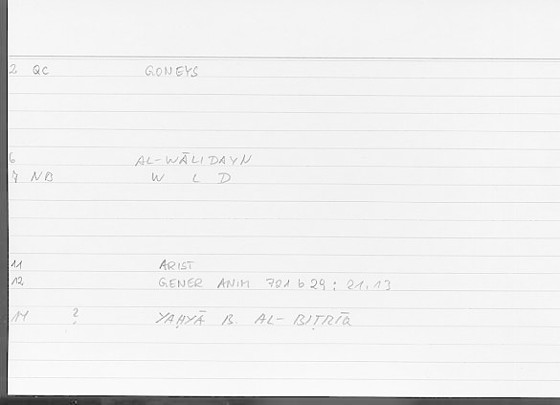 2 QC GONEYS
6 AL-WĀLIDAYN
7 NB W L D
11 ARIST
12 GENER ANIM 701 b 29 : 21,13
14 ? YAḤYĀ B. AL-BIṬRĪQ